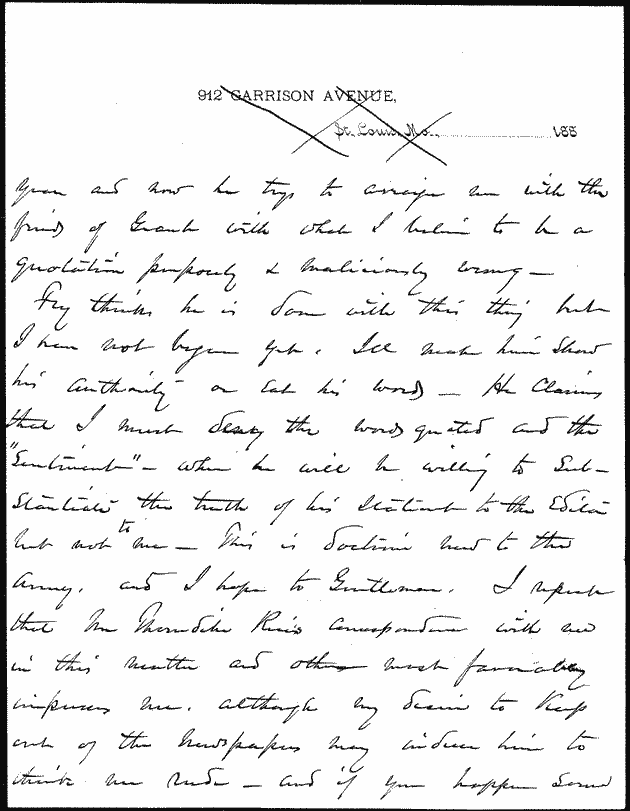 912 GARRISON AVENUE,
St. Louis, Mo., 188
years and now he trys to arraign me with the
friends of Grant with what I believe to be a
quotation purposely & maliciously wrong —
Fry thinks he is done with this thing but
I have not begun yet. I'll make him show
his authority or eat his words — He claims
that I must deny the words quoted and the
"Sentiment" — when he will be willing to Sub-
stantiate the truth of his Statement to the Editor
but not to me — This is doctrine new to the
Army, and I hope to Gentlemen. I repeat
that Mr Thorndike Rice's correspondence with me
in this matter and others most favorably
impress me, although my desire to Keep
out of the Newspapers may induce him to
think me rude — and if you happen some